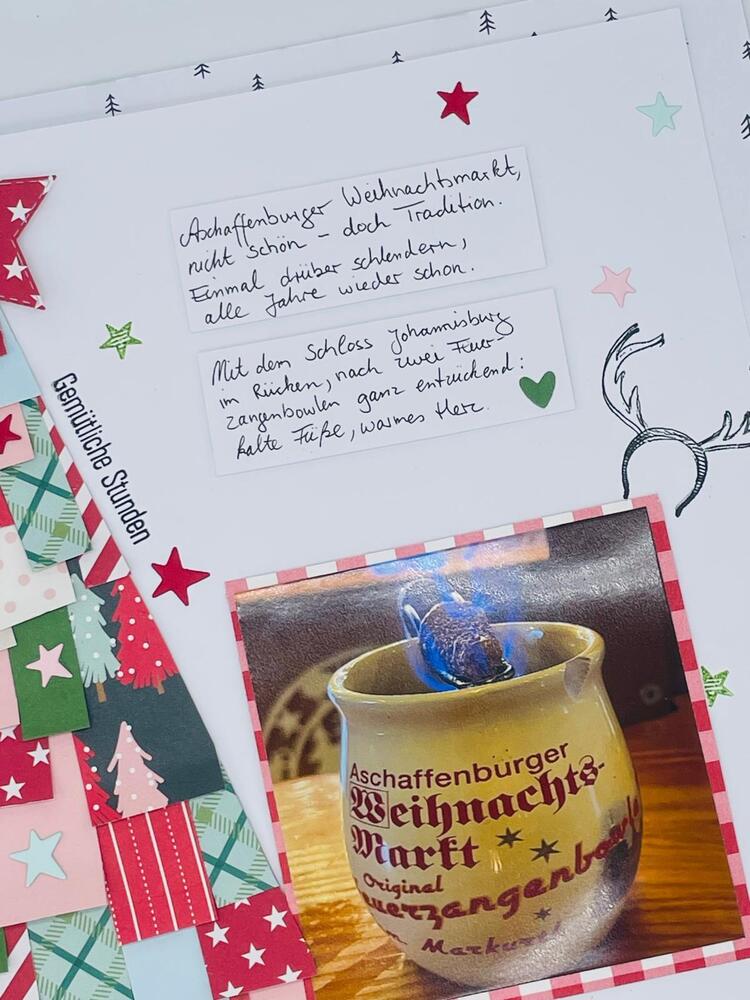 Aschaffenburger Weihnachtsmarkt,
nicht schön – doch Tradition.
Einmal drüber schlendern,
alle Jahre wieder schon.
Mit dem Schloss Johannisburg
im Rücken, nach zwei Feuer-
zangenbowlen ganz entzückend:
kalte Füße, warmes Herz.
Gemütliche Stunden
Aschaffenburger
Weihnachts-
Markt
Original
euerzangenbowle